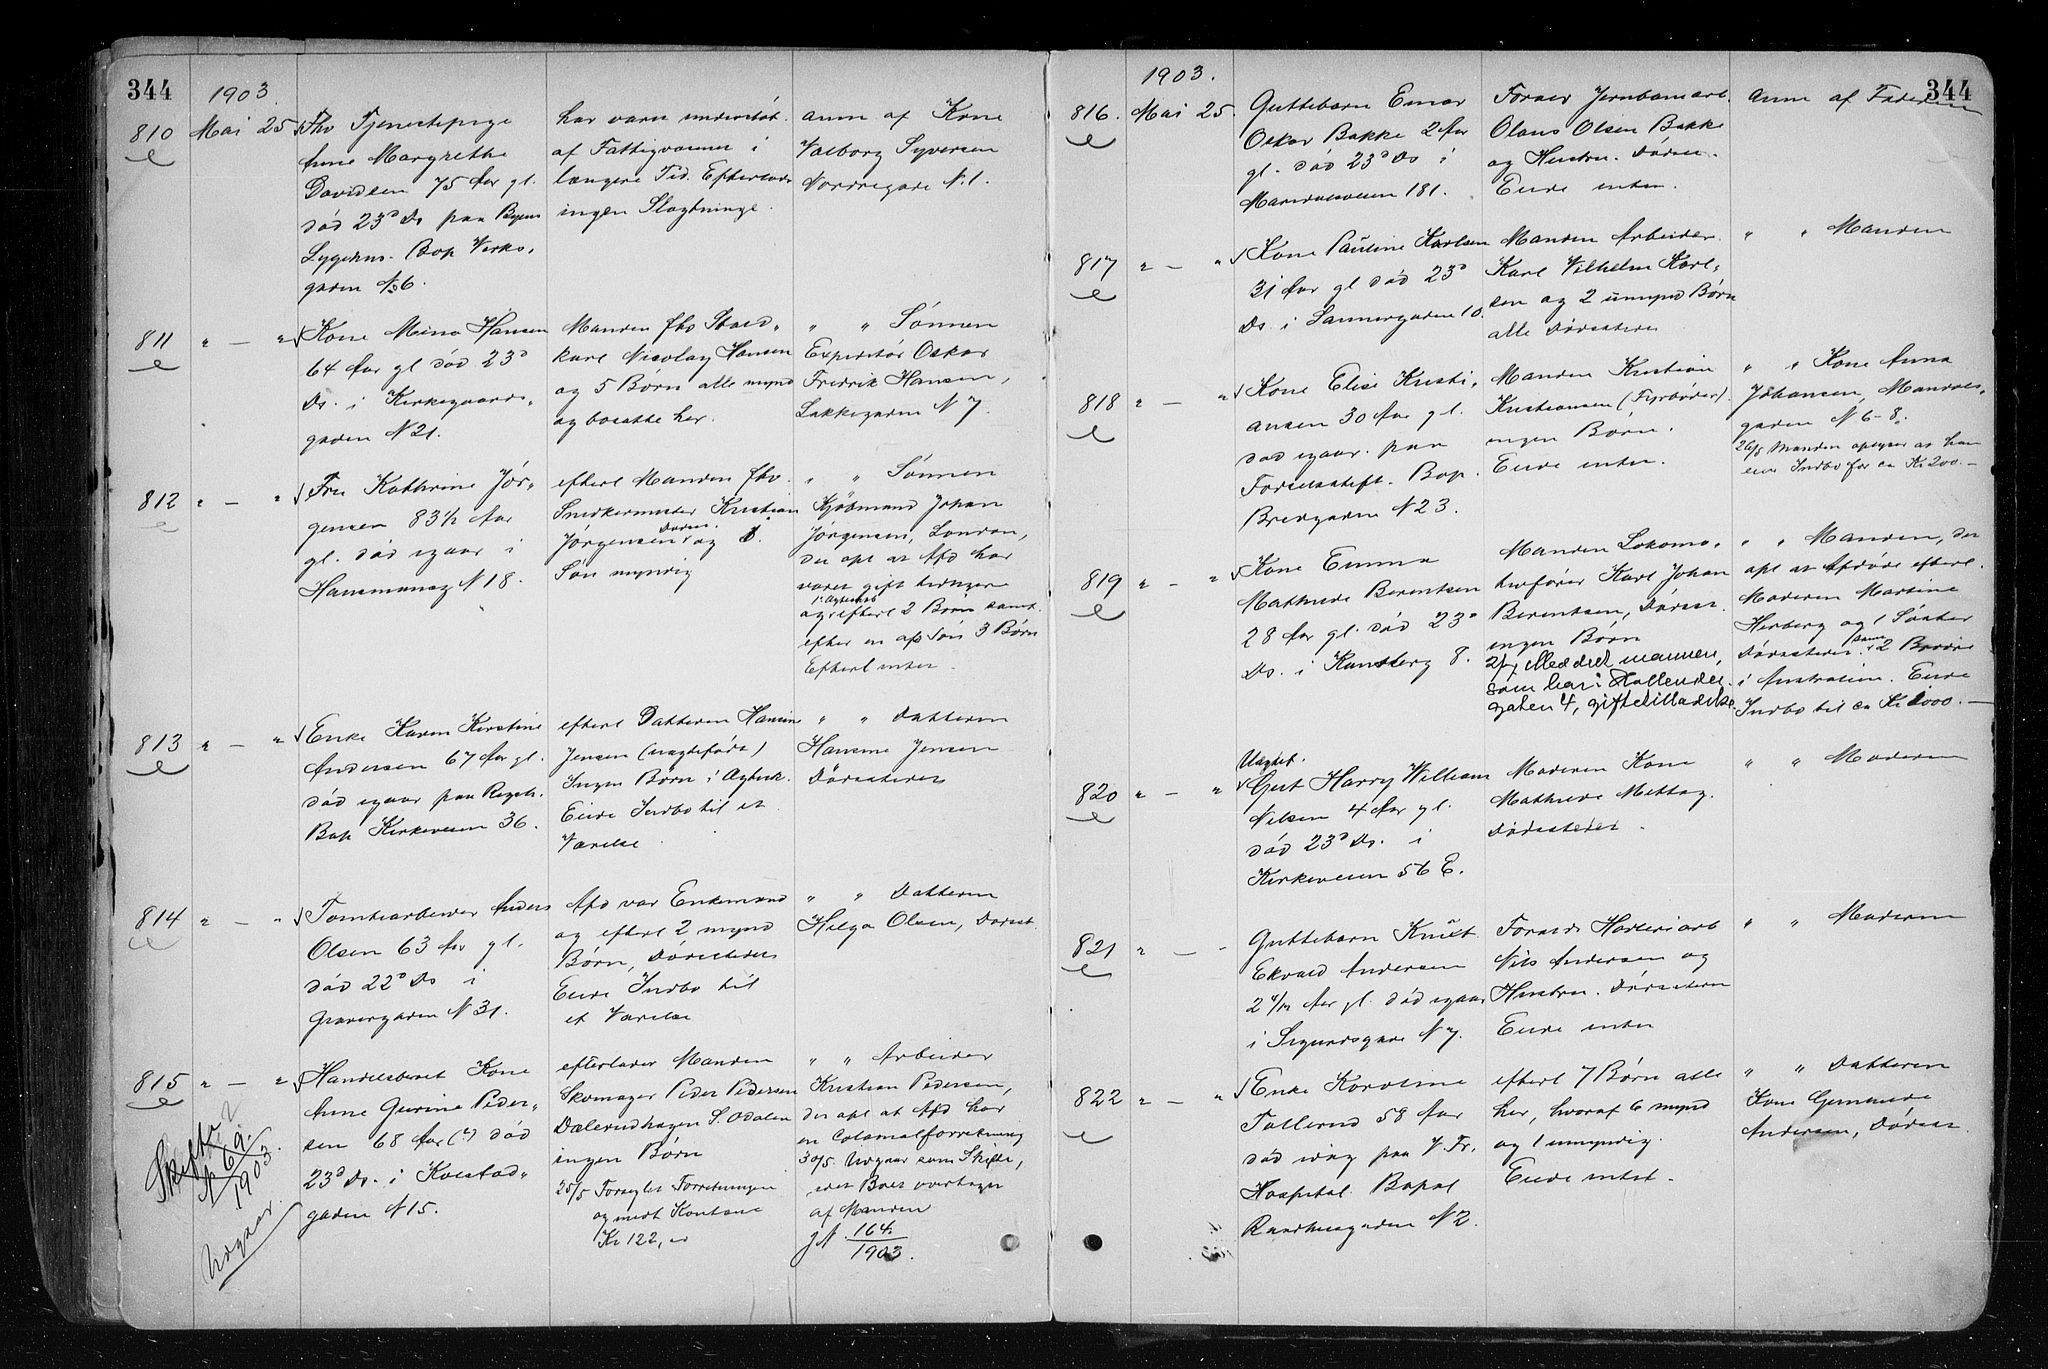 344
1903
810 Mai 25 Fhv Tjenestepige
Anne Margrethe
Davidsen 75 Aar gl.
død 23d Ds paa Byens
Sygehus. Bop Verks-
gaden No 6.
har været understøt.
af Fattigvæsenet i
længere Tid. Efterlader
ingen Slægtninge.
anm af Kone
Valborg Syversen
Nordregade N. 1.
811 " — " Kone Mina Hansen
64 Aar gl død 23d
Ds. i Kirkegaards-
gaden N 21.
Manden fhv Stald-
karl Nicolay Hansen
og 5 Børn alle mynd
og bosatte her.
" " Sønnen
Expeditør Oskar
Fredrik Hansen,
Lakkegaden N 7.
812 " — " Fru Kathrine Jør-
gensen 83 1/2 Aar
gl. død igaar i
Hausmannsg N 18.
efterl Manden fhv.
Snedkermester Kristian
Jørgensen Dødss. og 1
Søn myndig
" " Sønnen
Kjøbmand Johan
Jørgensen, London,
der opl at Afd har
været gift tidligere
og i 1st Ægteskab efterl 2 Børn samt
efter en afd Søn 3 Børn
Efterl intet.
813 " — " Enke Karen Kirstine
Andersen 67 Aar gl.
død igaar paa Rigsh.
Bop Kirkeveien 36.
efterl Datteren Hansine
Jensen (uægtefødt)
Ingen Børn i Ægtesk.
Eiede Indbo til et
Værelse
" " Datteren
Hansine Jensen
Dødsstedet
814 " — " Tomtearbeider Anders
Olsen 63 Aar gl.
død 22d Ds i
Grønnergaden N 31.
Afd var Enkemand
og efterl 2 mynd
Børn, Dødsstedet
Eiede Indbo til
et Værelse
" " Datteren
Helga Olsen, Dødsst.
815 " — " Handelsberet Kone
Anne Gurine Peder-
sen 68 Aar (?) død
23d Ds. i Kolstad-
gaden N 15.
efterlader Manden
Skomager Peder Pedersen
Dælerudhagen S. Odalen
ingen Børn
25/5 Forseglet Forretningen
og medt Kontant
Kr 122,
" " Arbeider
Kristian Pedersen,
der opl at Afd har
en Colonialforretning
30/5 Udgaar som Skifte,
idet Boet overtages
af Manden
JN 164/1903.
Skifte
N 69.
1903.
Udgaar
344
1903.
816. Mai 25. Guttebarn Einar
Oskar Bakke 2 Aar
gl. død 23d Ds i
Maridalsveien 181.
Foræld Jernbanearb.
Olaus Olsen Bakke
og Hustru. Dødsst.
Eiede intet.
Anm af Faderen
817 " — " Kone Pauline Karlsen
31 Aar gl død 23d
Ds. i Sannergaden 10.
Manden Arbeider
Karl Vilhelm Karl-
sen og 2 umynd Børn
alle Dødsstedet
" " Manden
818 " — " Kone Elise Kristi-
ansen 30 Aar gl.
død igaar paa
Fødselsstift. Bop.
Bredgaden N 23.
Manden Kristian
Kristiansen (Fyrbøder)
ingen Børn.
Eiede intet.
" " Kone Anna
Johansen, Mandals-
gaden N 6-8.
26/5 Manden oplyser at han
eier Indbo for ca Kr 200.—
819 " — " Kone Emma
Mathilde Berentsen
28 Aar gl. død 23d
Ds. i Kunsberg 8.
Manden Lokomo-
tivfører Karl Johan
Berentsen, Dødsst.
ingen Børn
Meddelt manden,
som bor i Hollender-
gaten 4, giftetilladelse
" " Manden, der
opl at Afdøde efterl.
Moderen Martine
Herberg og 1 Søster
Dødsstedet samt 2 Brødre
i Australien. Eiede
Indbo til ca Kr 1000.—
820 " — " Uægtef.
Gut Harry William
Nilsen 4 Aar gl.
død 23d Ds. i
Kirkeveien 56 E.
Moderen Kone
Mathilde Mettag.
Dødsstedet.
" " Moderen
821 " — " Guttebarn Knut
Edvard Andersen
2 4/12 Aar gl. død igaar
i Sigurdsgade N 7.
Foræld: Høvleriarb
Nils Andersen og
Hustru. Dødsstedet
Eiede intet
" " Moderen
822 " — " Enke Karoline
Tollerud 58 Aar
død idag paa V. Fr.
Hospital. Bopæl
Raadhusgaden N 2.
efterl 7 Børn alle
her, hvoraf 6 mynd
og 1 umyndig.
Eiede intet.
" " Datteren
Kone Gunhilde
Andersen, Dødsst.